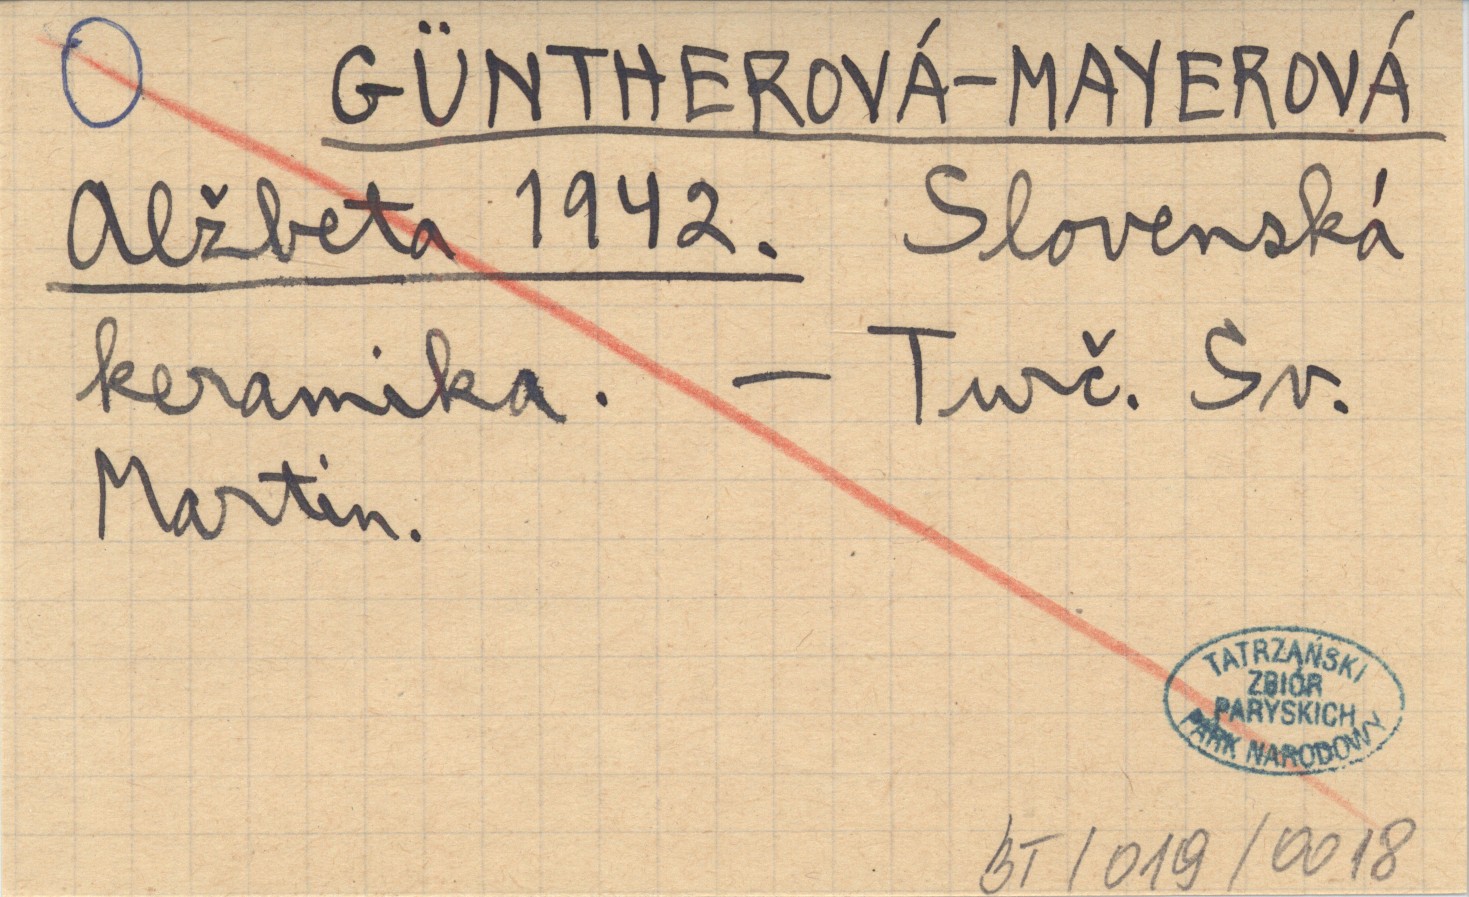 GÜNTHEROVÁ-MAYEROVÁ
Alžbeta 1942. Slovenská
keramika. — Turč. Sv.
Martin.
TATRZAŃSKI
ZBIÓR
PARYSKICH
PARK NARODOWY
BT/019/0018